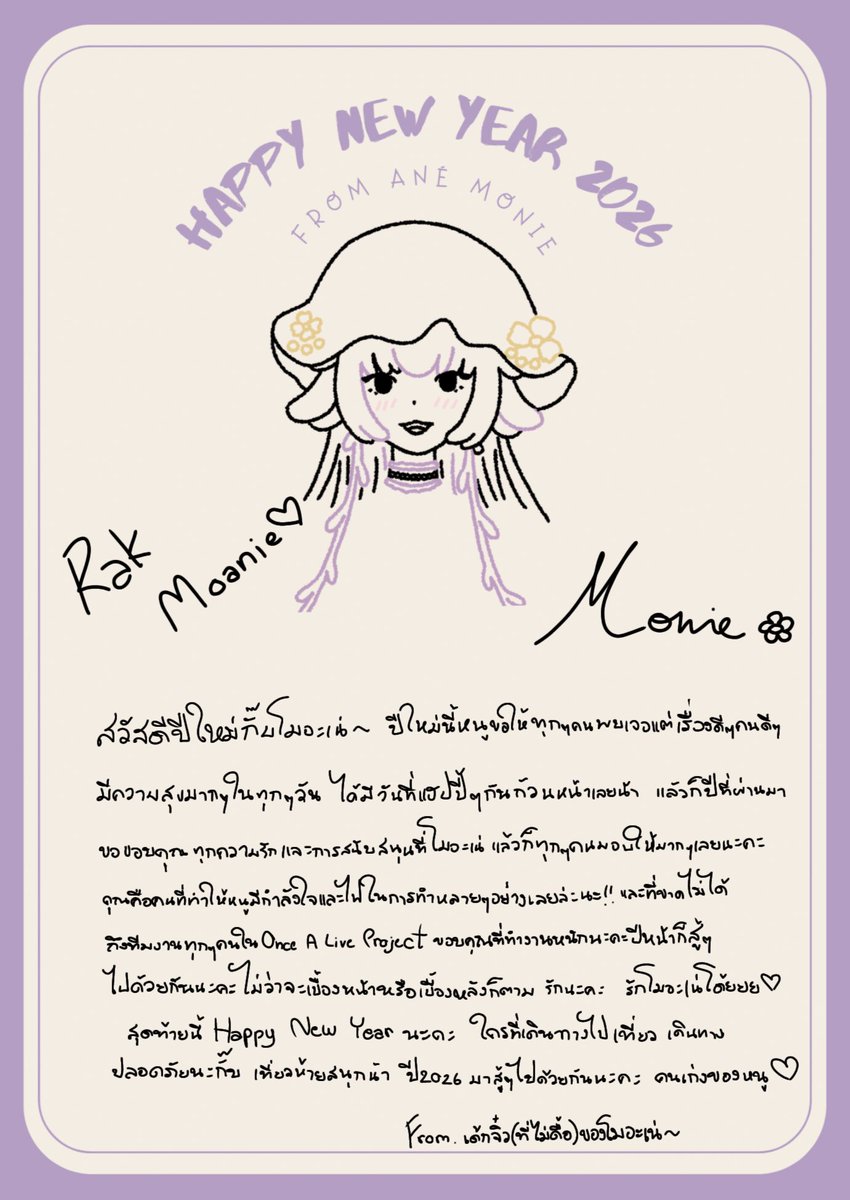 HAPPY NEW YEAR 2026
FROM ANÉ MONIE
Rak
Moanie♡
Monie
สวัสดีปีใหม่กั๊บโมอะเน่~ ปีใหม่นี้หนูขอให้ทุกๆคนพบเจอแต่เรื่องดีๆคนดีๆ
มีความสุขมากๆในทุกๆวัน ได้มีวันที่แฮปปี้ๆกันถ้วนหน้าเลยน้า แล้วก็ปีที่ผ่านมา
ขอขอบคุณทุกความรักและการสนับสนุนที่โมอะเน่ แล้วก็ทุกๆคนมอบให้มากๆเลยนะคะ
คุณคือคนที่ทำให้หนูมีกำลังใจและไฟในการทำหลายๆอย่างเลยล่ะนะ!! และที่ขาดไม่ได้
ถึงทีมงานทุกๆคนใน Once A Live Project ขอบคุณที่ทำงานหนักนะคะปีหน้าก็สู้ๆ
ไปด้วยกันนะคะไม่ว่าจะเบื้องหน้าหรือเบื้องหลังก็ตาม รักนะคะ รักโมอะเน่โด้ยยย♡
สุดท้ายนี้ Happy New Year นะคะ ใครที่เดินทางไปเที่ยว เดินทาง
ปลอดภัยนะกั๊บ เที่ยวห้ายสนุกน้า ปี2026 มาสู้ๆไปด้วยกันนะคะ คนเก่งของหนู♡
From. เด้กจิ๋ว(ที่ไม่ดื้อ)ของโมอะเน่~